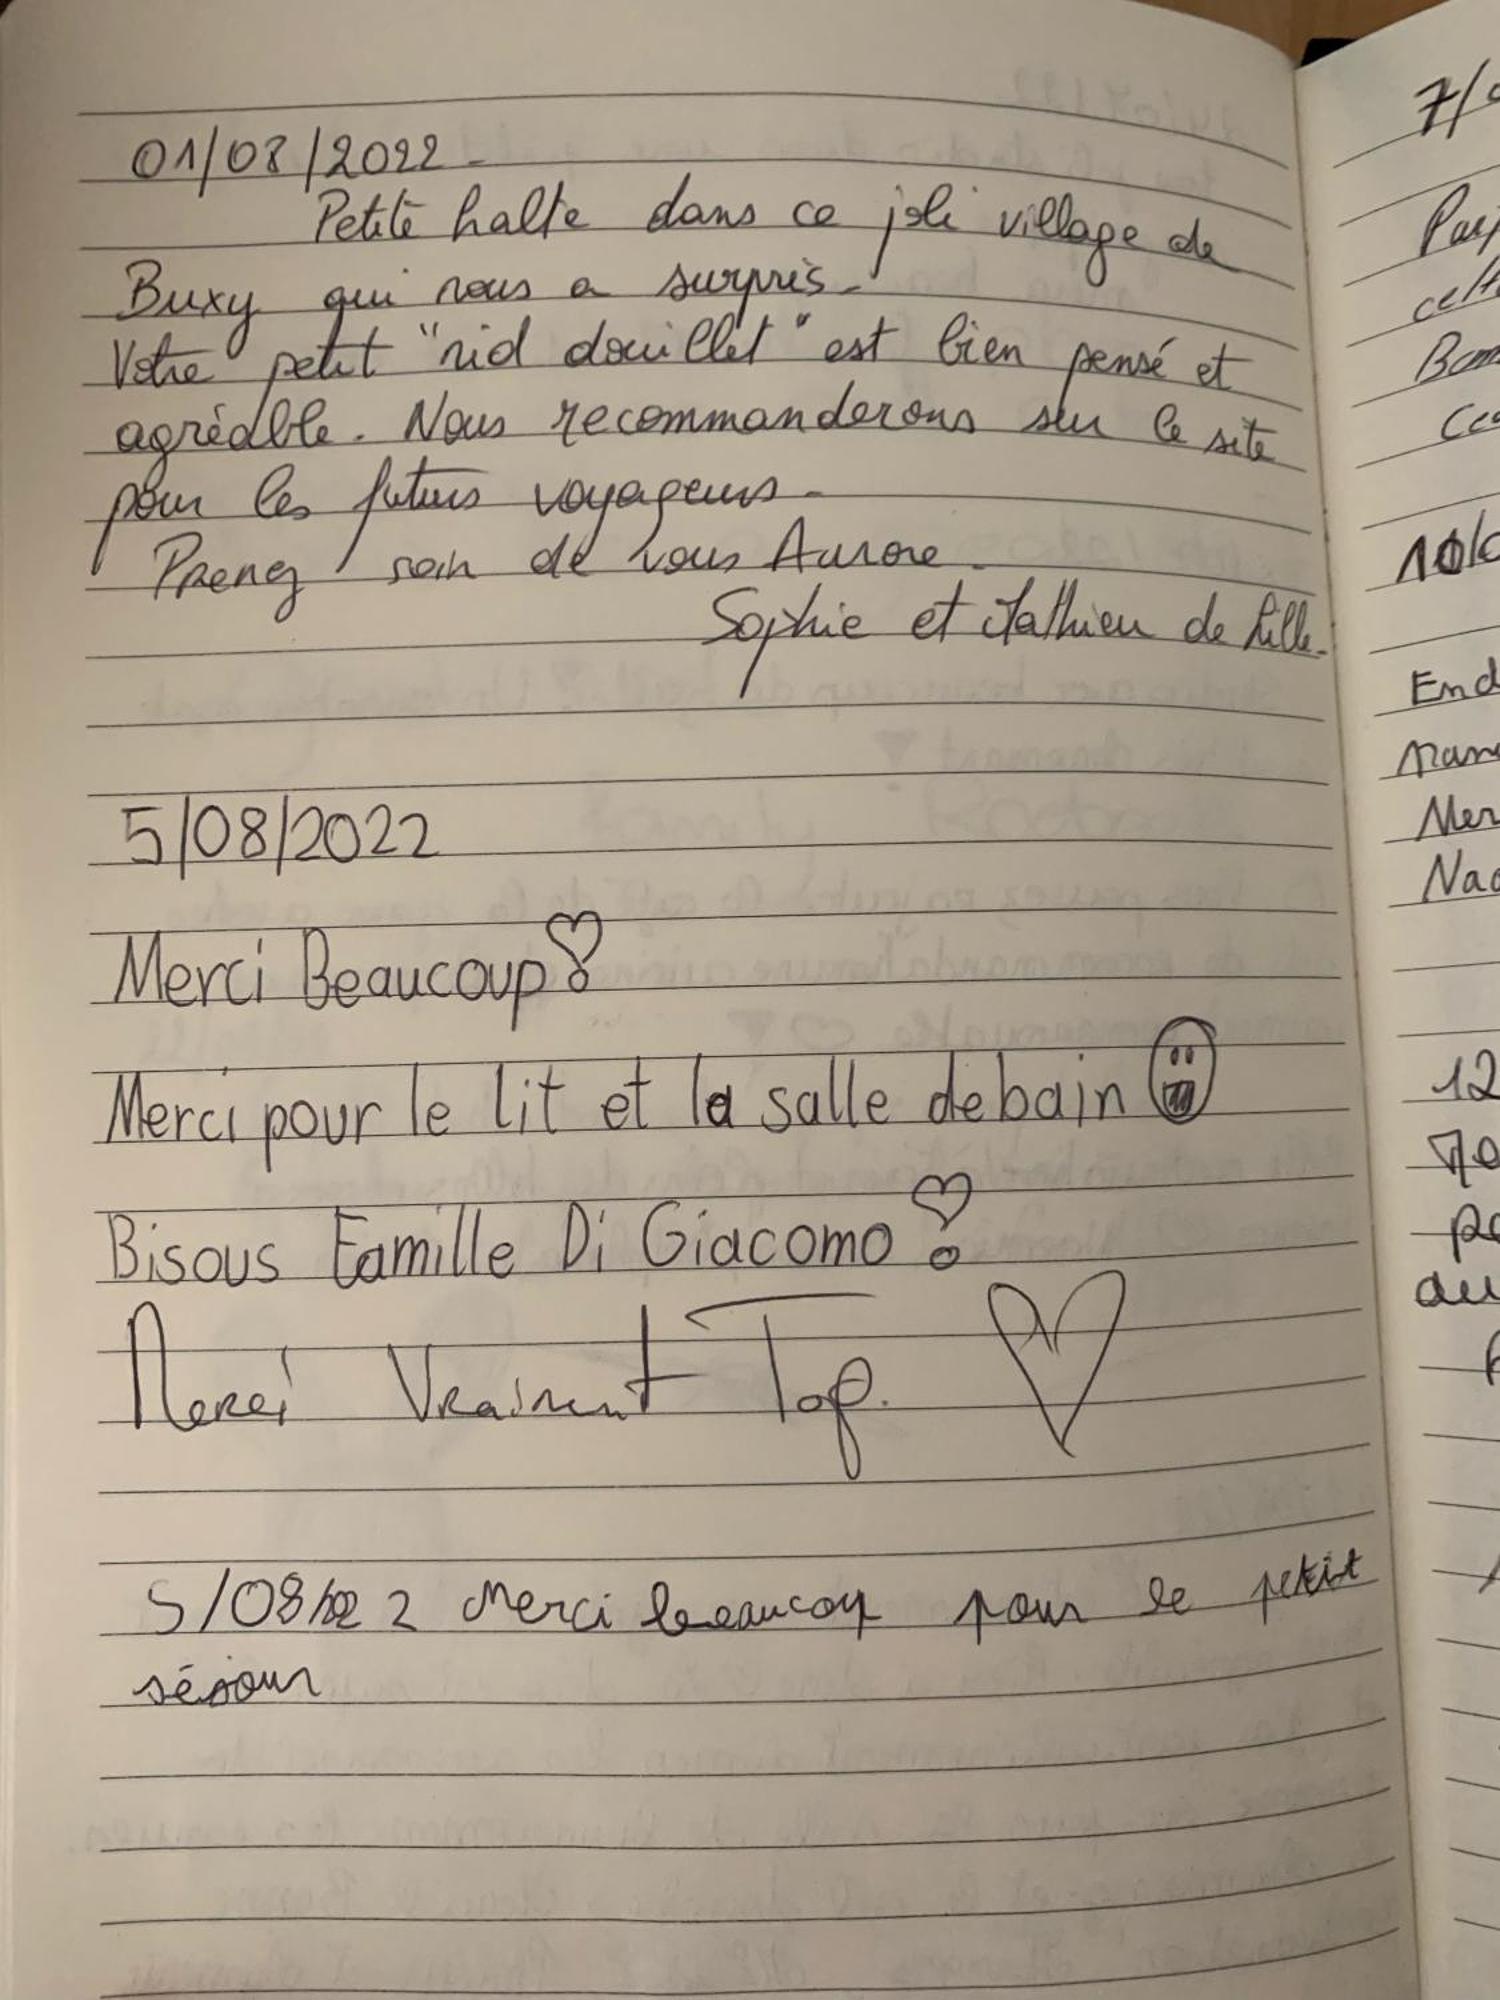 01/08/2022.
Petite halte dans ce joli village de
Buxy qui nous a surpris.
Votre petit "nid douillet" est bien pensé et
agréable. Nous recommanderons sur le site
pour les futurs voyageurs.
Prenez soin de vous Aurore.
Sophie et Mathieu de Lille.
5/08/2022
Merci Beaucoup!
Merci pour le lit et la salle de bain
Bisous Famille Di Giacomo!
Merci Vraiment Top.
5/08/2022 Merci beaucoup pour le petit
séjour
7/
cett
10/0
End
Mer
12